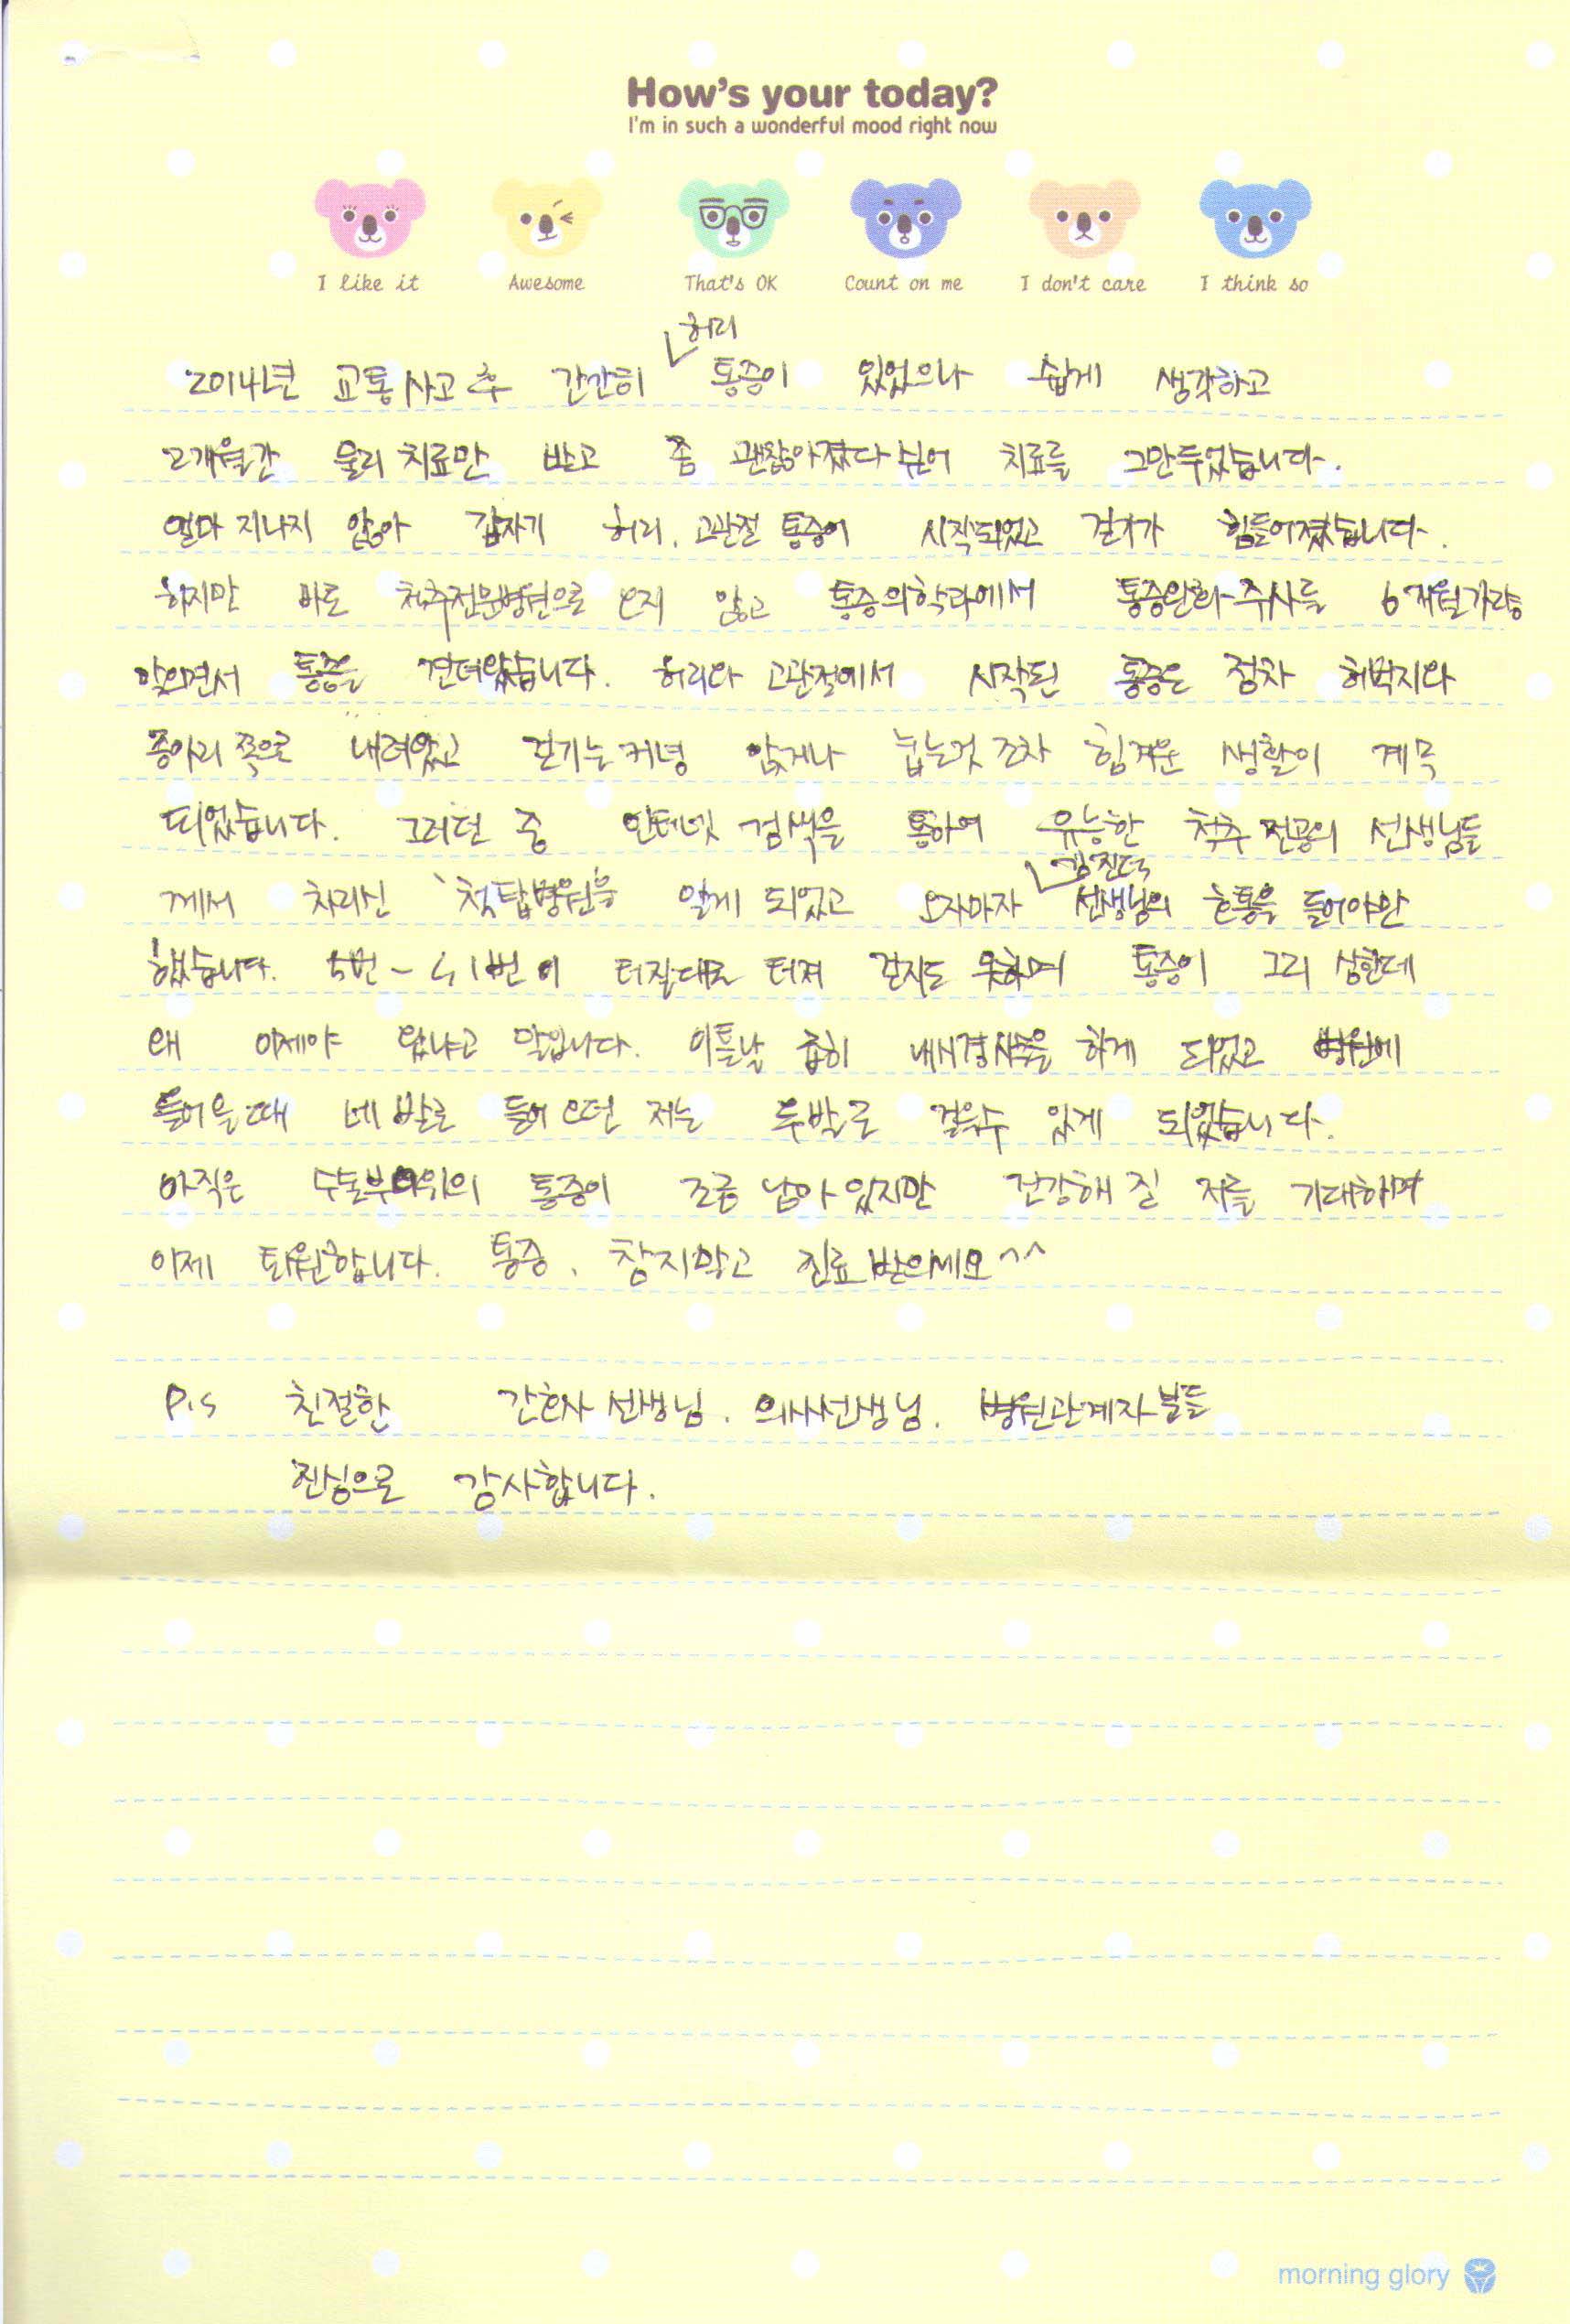 How's your today?
I'm in such a wonderful mood right now
I like it Awesome That's OK Count on me I don't care I think so
허리
2014년 교통사고 후 간간히 통증이 있었으나 쉽게 생각하고
2개월간 물리치료만 받고 좀 괜찮아졌다 싶어 치료를 그만두었습니다.
얼마 지나지 않아 갑자기 허리, 고관절 통증이 시작되었고 걷기가 힘들어졌습니다.
하지만 바로 척추전문병원으로 오지 않고 통증의학과에서 통증완화주사를 6개월가량
맞으면서 통증을 견뎌왔습니다. 허리와 고관절에서 시작된 통증은 점차 허벅지와
종아리 쪽으로 내려왔고 걷기는커녕 앉거나 눕는것 조차 힘겨운 생활이 계속
되었습니다. 그러던 중 인터넷 검색을 통하여 유능한 척추 전공의 선생님들
께서 차리신 척탑병원을 알게 되었고 오자마자 선생님의 호통을 들어야만
했습니다. 5번 - 이 터질대로 터져 걷지도 못하며 통증이 그리 심한데
왜 이제야 왔냐고 말입니다. 이튿날 급히 내시경시술을 하게 되었고 병원에
들어올때 네발로 들어오던 저는 두발로 걸을수 있게 되었습니다.
아직은 수술부위의 통증이 조금 남아있지만 건강해 질 저를 기대하며
이제 퇴원합니다. 통증, 참지말고 진료 받으세요^^
P.S 친절한 간호사 선생님. 의사선생님. 병원관계자분들
진심으로 감사합니다.
morning glory